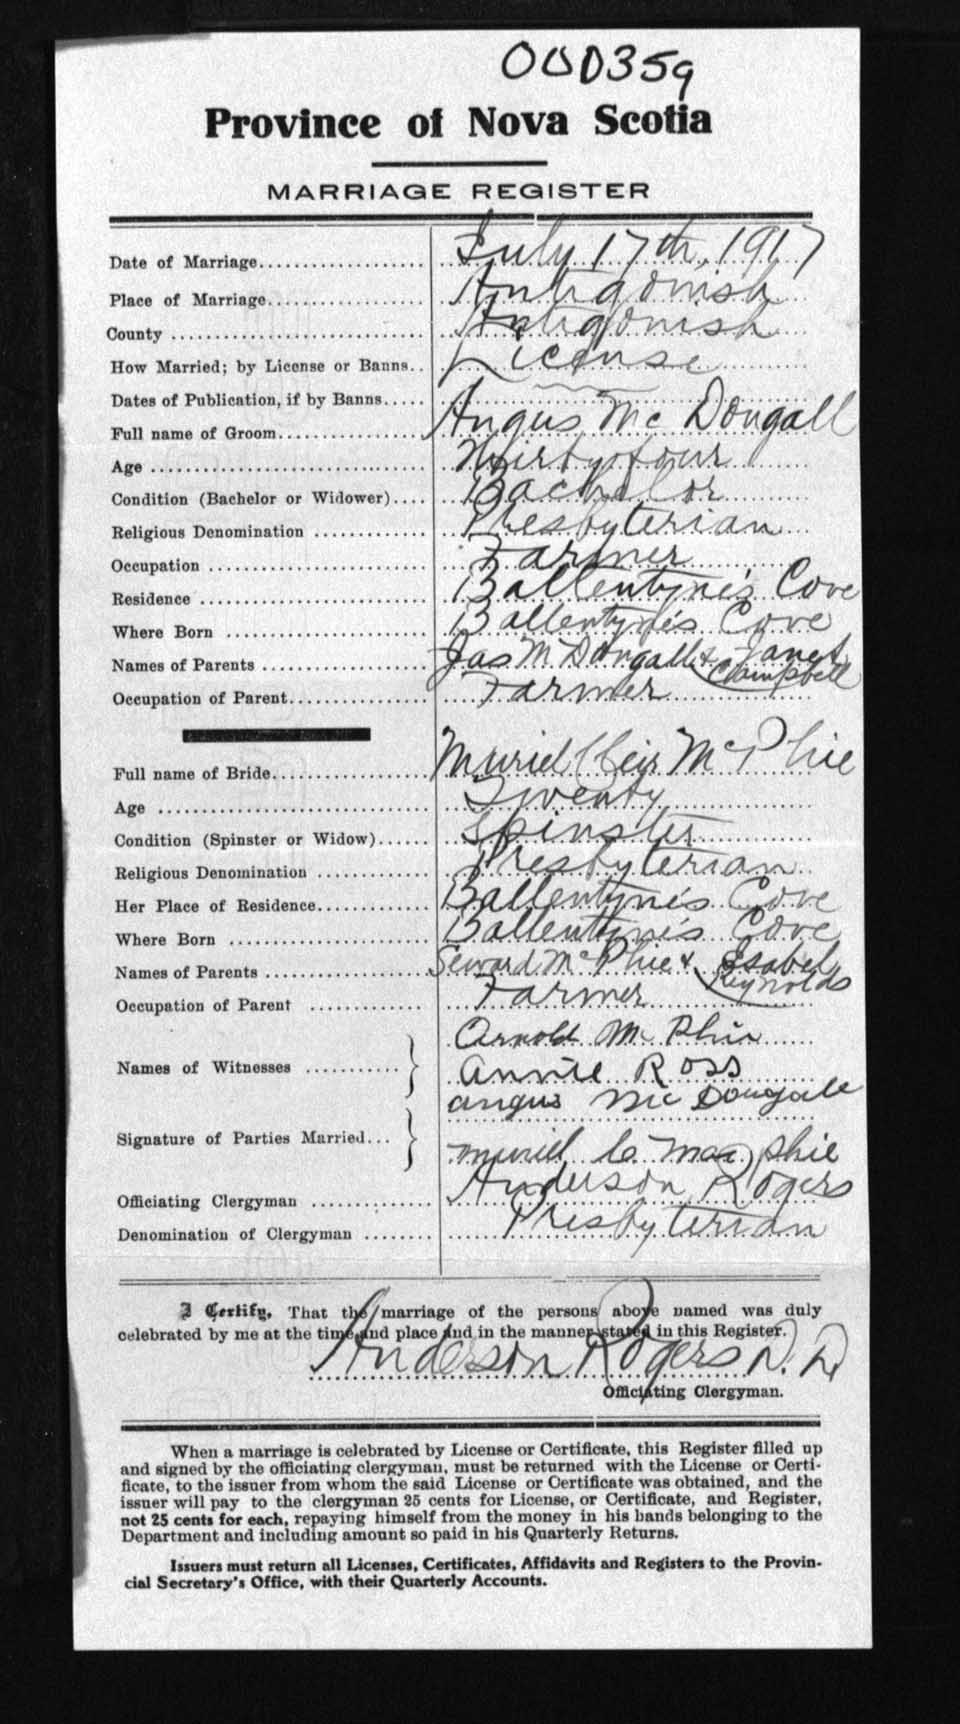 000359
Province of Nova Scotia
MARRIAGE REGISTER
Date of Marriage.................... July 17th, 1917
Place of Marriage................... Antigonish
County .............................. Antigonish
How Married; by License or Banns.. License
Dates of Publication, if by Banns.....
Full name of Groom................... Angus McDougall
Age ................................. Thirty four
Condition (Bachelor or Widower).... Bachelor
Religious Denomination ............. Presbyterian
Occupation .......................... Farmer
Residence ........................... Ballentyne's Cove
Where Born ......................... Ballentyne's Cove
Names of Parents .................... Jas McDougall & Janet Campbell
Occupation of Parent................. Farmer
Full name of Bride................... Muriel McPhie
Age ................................. Twenty
Condition (Spinster or Widow)...... Spinster
Religious Denomination ............. Presbyterian
Her Place of Residence.............. Ballentyne's Cove
Where Born ......................... Ballentyne's Cove
Names of Parents .................... Seward McPhie & Isabel Reynolds
Occupation of Parent ............... Farmer
Names of Witnesses ........... } Arnold McPhie
Annie Ross
Signature of Parties Married... } Angus McDougall
Muriel C MacPhie
Officiating Clergyman .............. Anderson Rogers
Denomination of Clergyman ........ Presbyterian
I Certify, That the marriage of the persons above named was duly
celebrated by me at the time and place and in the manner stated in this Register.
Anderson Rogers D.D.
Officiating Clergyman.
When a marriage is celebrated by License or Certificate, this Register filled up
and signed by the officiating clergyman, must be returned with the License or Certi-
ficate, to the issuer from whom the said License or Certificate was obtained, and the
issuer will pay to the clergyman 25 cents for License, or Certificate, and Register,
not 25 cents for each, repaying himself from the money in his hands belonging to the
Department and including amount so paid in his Quarterly Returns.
Issuers must return all Licenses, Certificates, Affidavits and Registers to the Provin-
cial Secretary's Office, with their Quarterly Accounts.